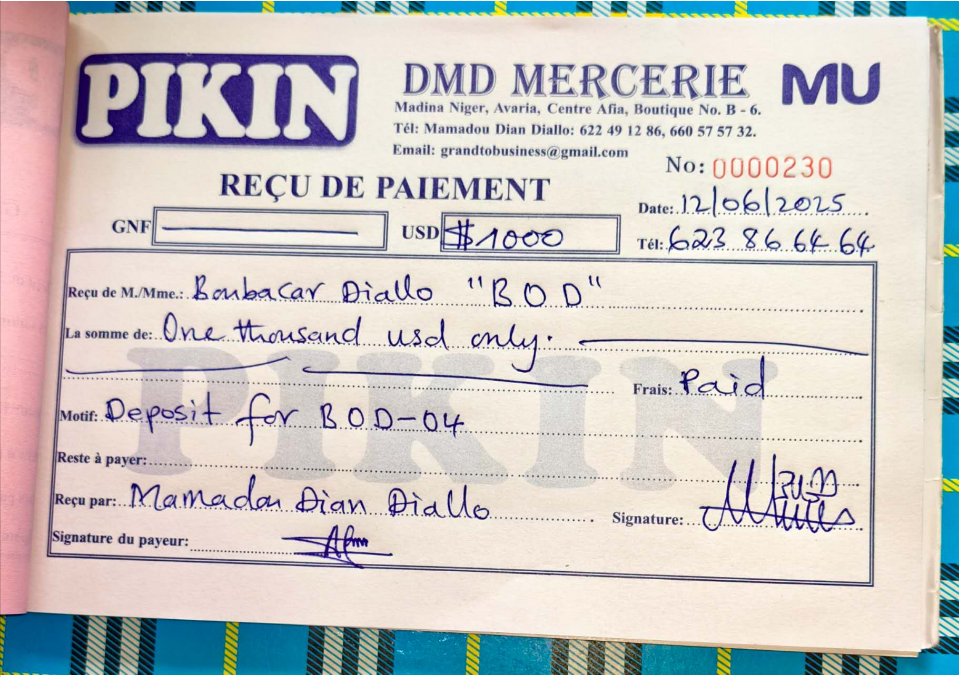 PIKIN
DMD MERCERIE
MU
Madina Niger, Avaria, Centre Afia, Boutique No. B - 6.
Tél: Mamadou Dian Diallo: 622 49 12 86, 660 57 57 32.
Email: grandtobusiness@gmail.com
No: 0000230
REÇU DE PAIEMENT
Date: 12/06/2025
GNF
USD $1000
Tél: 623 86 64 64
Reçu de M./Mme.: Boubacar Diallo "BOD"
La somme de: One thousand usd only.
Frais: Paid
PIKIN
Motif: Deposit for BOD-04
Reste à payer:
Reçu par: Mamadou Dian Diallo
Signature:
Signature du payeur: